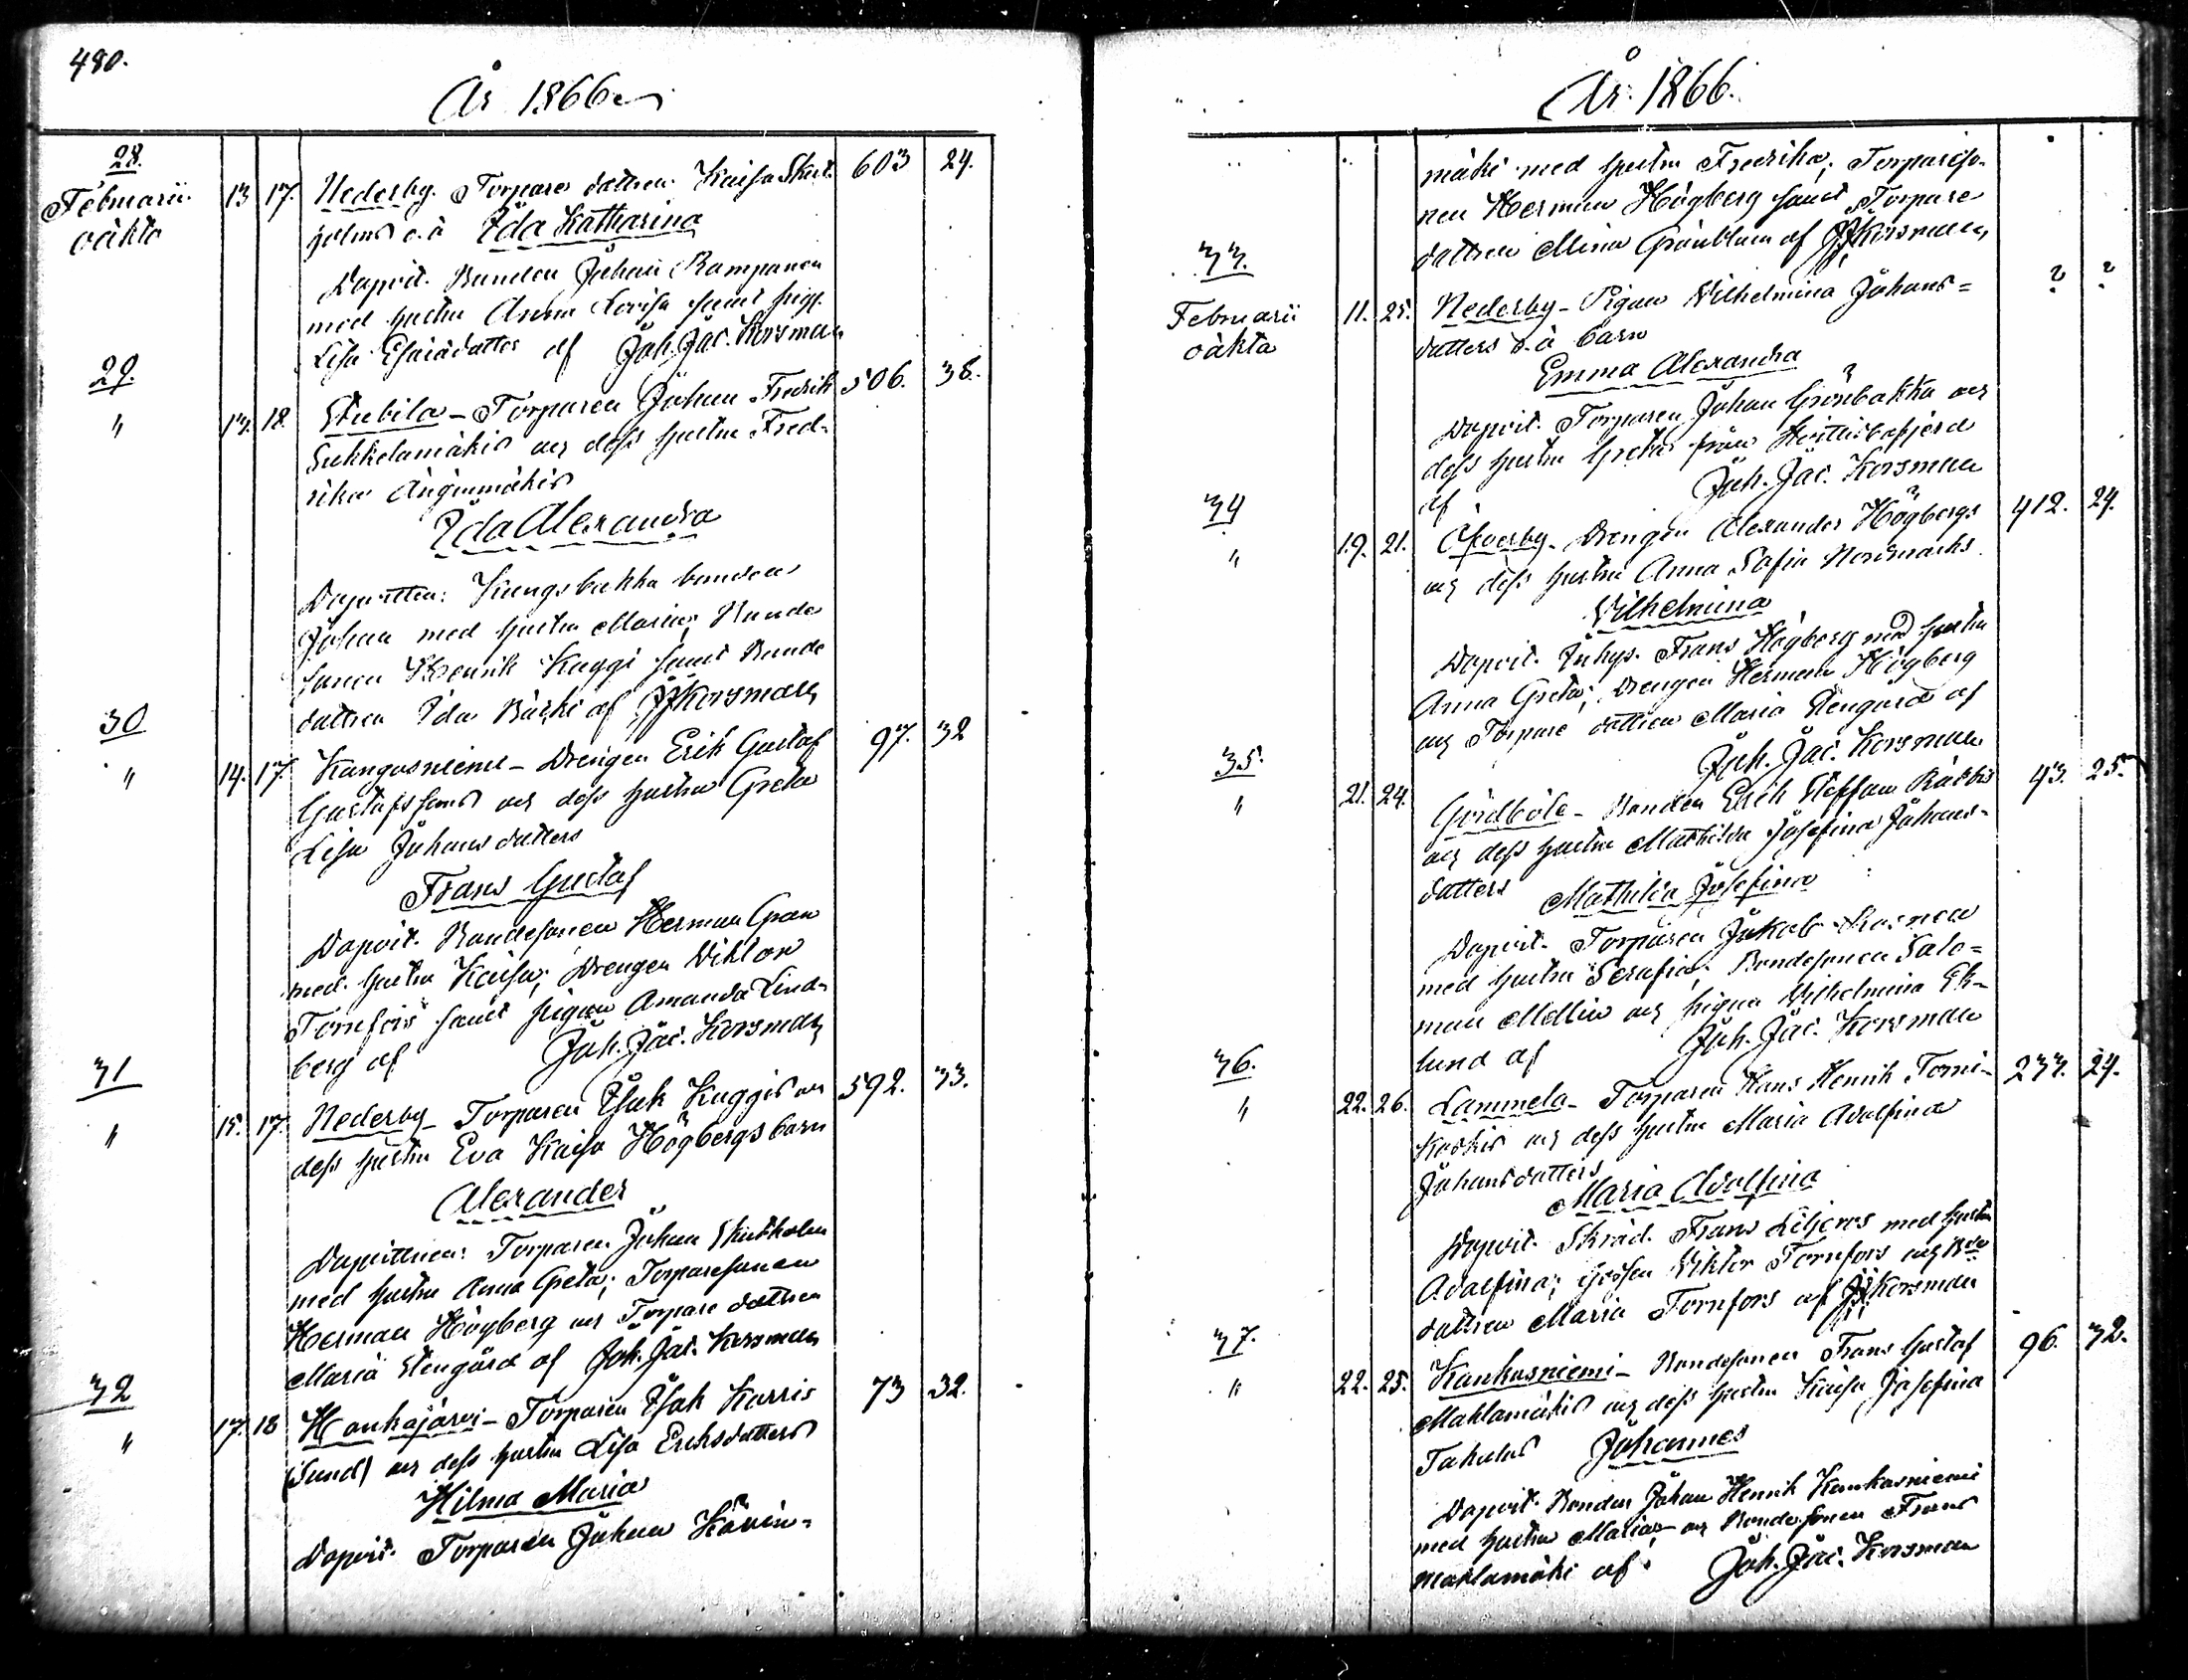 480.
År 1866
28.
Februarii 13 17. Nederby. Torpare dattren Kaisa Skut- 603 24.
oäkta
holms o.ä Ida Katharina
Dopvit. Bonden Johan Rampanen
med hustru Anna Lovisa samt pig.
Lisa Esaiædatter af Joh. Jac. Korsman
29.
" 13. 18. Stubila - Torparen Johan Fredrik 506. 38.
Sukkelamäkis och dess hustru Fred-
rika Änginmäkis
Ida Alexandra
Dopvittn: Kungsbakka bonden
Johan med hustru Maria; Bonde
sonen Henrik Kuggi samt Bonde
dattren Ida Bäcki af JJKorsman
30
" 14. 17. Kangasniemi - Drengen Erik Gustaf 97. 32
Gustafssons och dess hustru Greta
Lisa Johansdatters
Frans Gustaf
Dopvit. Bondesonen Herman Gran
med hustru Kaisa; Drengen Viktor
Tornfors samt pigan Amanda Lind-
berg af Joh. Jac. Korsman
31
" 15. 17. Nederby - Torparen Isak Kuggis och 592. 33.
dess hustru Eva Kaisa Högbergs barn
Alexander
Dopvittnen: Torparen Johan Skutholm
med hustru Anna Greta; Torparesonen
Herman Högberg och Torpare dattren
Maria Stengård af Joh. Jac. Korsman
32
" 17. 18 Hankajärvi - Torparen Isak Karris 73 32.
(Sund) och dess hustru Lisa Eriksdatters
Hilma Maria
Dopvit. Torparen Johan Kävin-
År 1866.
mäki med hustru Fredrika; Torpareso-
nen Herman Högberg samt Torpare
dattren Mina Grönblum af JJKorsman
33.
Februarii 11. 25. Nederby - Pigan Vilhelmina Johans= ? ?
oäkta
datters o.ä barn
Emma Alexandra
Dopvit. Torparen Johan Grönbakka och
dess hustru Greta från
af Joh. Jac. Korsman
34
" 19. 21. Öfverby - Drengen Alexander Högbergs 412. 24.
och dess hustru Anna Sofia Nordmarks
Vilhelmina
Dopvit. Inhys. Frans Högberg med hustru
Anna Greta; Drengen Herman Högberg
och Torpare dattren Maria Stengård af
Joh. Jac. Korsman
35.
" 21. 24. Gördböle - Bonden Erik Steffan Räckis 43. 25.
och dess hustru Mathilda Josefina Johans-
datters Mathilda Josefina
Dopvit. Torparen Jakob
med hustru Serafia; Bondesonen Salo=
mon Mellin och pigan Vilhelmina Ek-
lund af Joh. Jac. Korsman
36.
" 22. 26. Lammela - Torparen Hans Henrik Torni- 233. 24.
koskis och dess hustru Maria Adolfina
Johansdatters
Maria Adolfina
Dopvit. Skräd. Frans Liljeros med hustru
Adolfina; Gossen Viktor Tornfors och Bde
dattren Maria Tornfors af JJKorsman
37.
" 22. 25. Kankasniemi - Bondesonen Frans Gustaf 96. 32.
Maklamäkis och dess hustru Kaisa Josefina
Takalas Johannes
Dopvit. Bonden Johan Henrik Kankasniemi
med hustru Maria och Bondesonen Frans
Maklamäki af Joh. Jac. Korsman